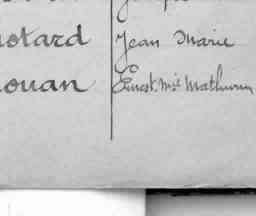 otard Jean Marie
ouan Ernest Mie Mathurin